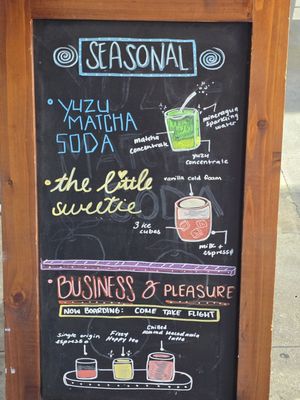 SEASONAL
YUZU
MATCHA
SODA
mineragua
sparkling
water
matcha
concentrate
yuzu
concentrate
the little
sweetie
vanilla cold foam
3 ice
cubes
milk +
espresso
BUSINESS & PLEASURE
NOW BOARDING: COME TAKE FLIGHT
single origin
espresso
Fizzy
Hoppy tea
Chilled
Almond Macadamia
latte